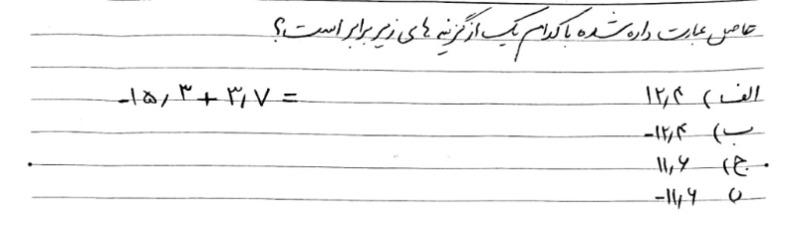 حاصل عبارت داده شده با کدام یک از گزینه های زیر برابر است؟
الف) ۱۲٫۴
-۱۵٫۳ + ۳٫۷ =
ب) -۱۲٫۴
ج) ۱۱٫۶
د -۱۱٫۶